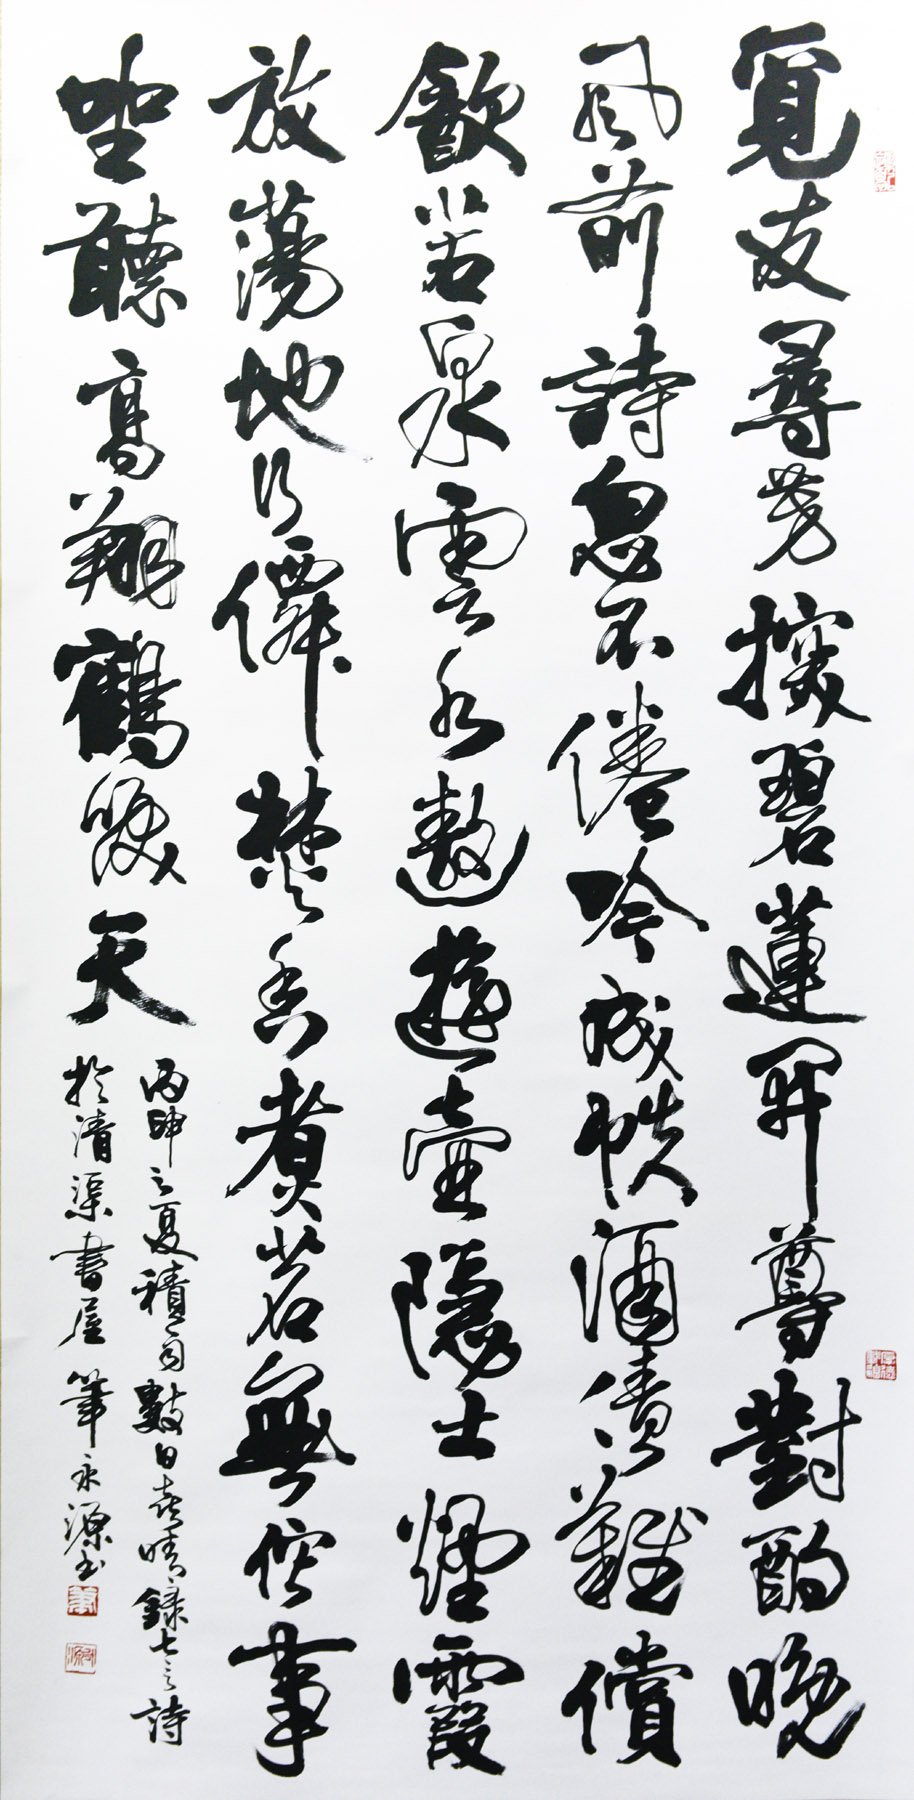 覓友尋芳探碧蓮開尊對酌晚
風前詩思不倦吟成帙酒債難償
飲若泉雲水遨遊壺隱士煙霞
放蕩地行僊焚香煮茗無俗事
坐聽高翔鶴唳天
丙申之夏積雨數日喜晴錄七言詩
於清渠書屋永源書